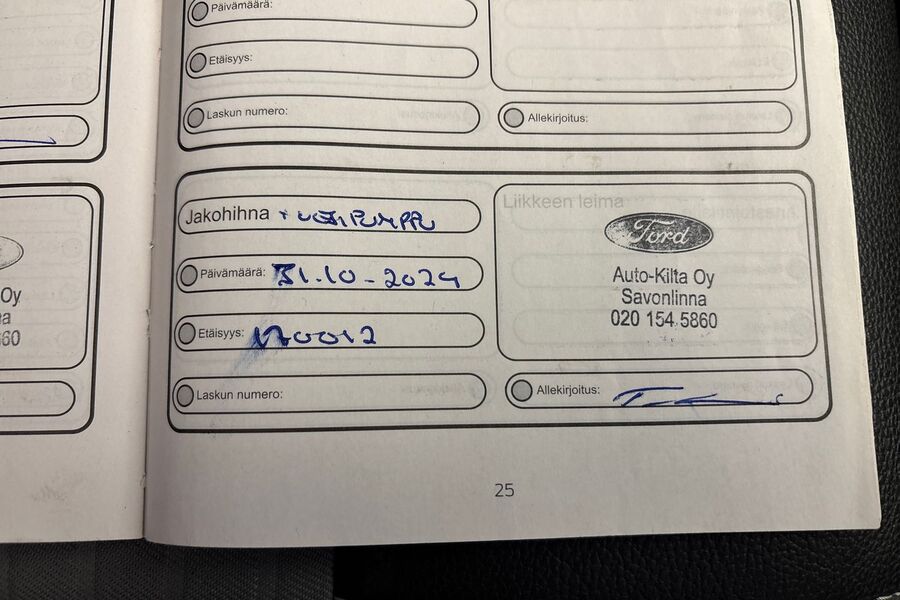 Päivämäärä:
Etäisyys:
Laskun numero:
Allekirjoitus:
Jakohihna + VESIPUMPPU
Liikkeen leima
Ford
Päivämäärä: 31.10-2024
Auto-Kilta Oy
Savonlinna
020 154 5860
Etäisyys: 170012
Laskun numero:
Allekirjoitus:
Oy
60
25